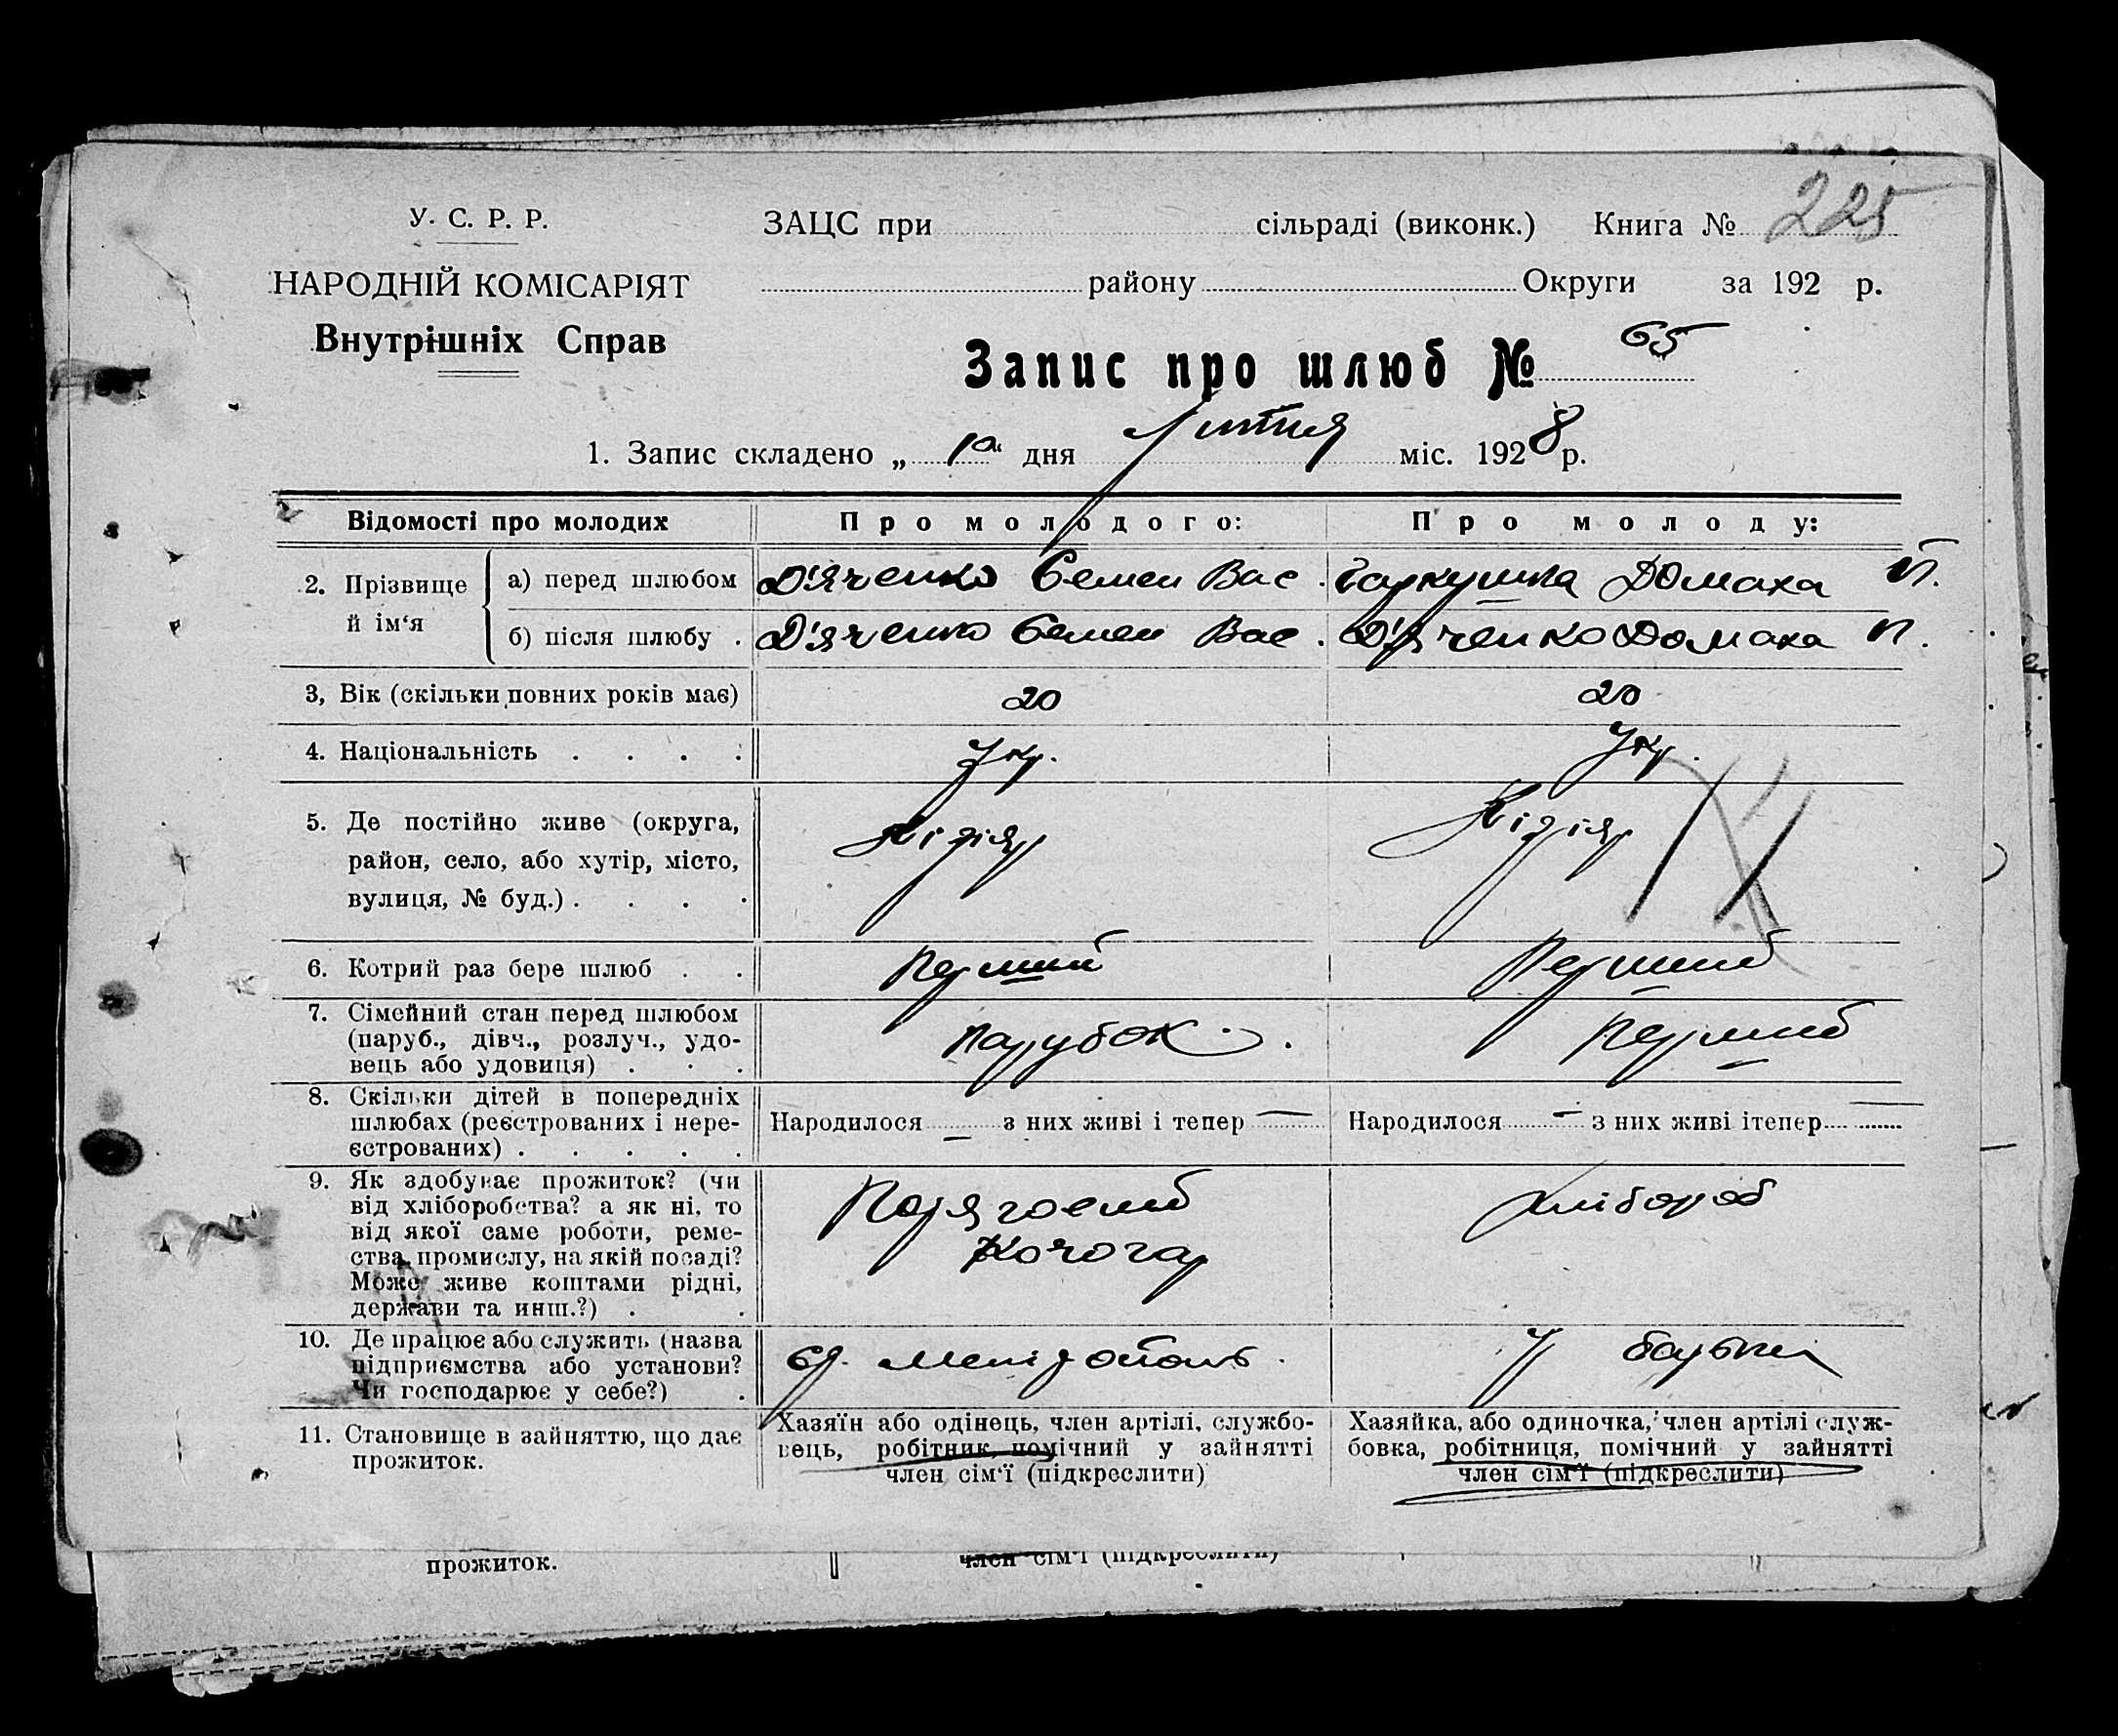 У. С. Р. Р.
НАРОДНІЙ КОМІСАРІЯТ
Внутрішніх Справ
ЗАЦС при сільраді (виконк.) Книга № 225
району Округи за 192 р.
Запис про шлюб № 65
1. Запис складено „ 1го “ дня Лютня міс. 1928 р.
Відомості про молодих Про молодого: Про молоду:
2. Прізвище й ім‘я
а) перед шлюбом Д'яченко Семен Вас. Гаркушка Домаха П.
б) після шлюбу . Д'яченко Семен Вас. Д'яченко Домаха П.
3, Вік (скільки повних років має) 20 20
4. Національність . . . . Укр. Укр.
5. Де постійно живе (округа,
район, село, або хутір, місто,
вулиця, № буд.) . . . .
6. Котрий раз бере шлюб . . Перший Перший
7. Сімейний стан перед шлюбом
(паруб., дівч., розлуч., удо-
вець або удовиця) . . . Парубок. Перший
8. Скільки дітей в попередніх
шлюбах (реєстрованих і нере-
єстрованих) . . . . .
Народилося — з них живі і тепер —
Народилося — з них живі ітепер —
9. Як здобуває прожиток? (чи
від хліборобства? а як ні, то
від якої саме роботи, реме-
ства, промислу, на якій посаді?
Може живе коштами рідні,
держави та инш.?) . .
Кочогар
Хлібороб
10. Де працює або служить (назва
підприємства або установи?
Чи господарює у себе?) .
Мелітополь.
У батьки
11. Становище в зайняттю, що дає
прожиток.
Хазяїн або одінець, член артілі, службо-
вець, робітник, помічний у зайнятті
член сім‘ї (підкреслити)
Хазяйка, або одиночка, член артілі служ-
бовка, робітниця, помічний у зайнятті
член сім‘ї (підкреслити)
прожиток. член сім‘ї (підкреслити)